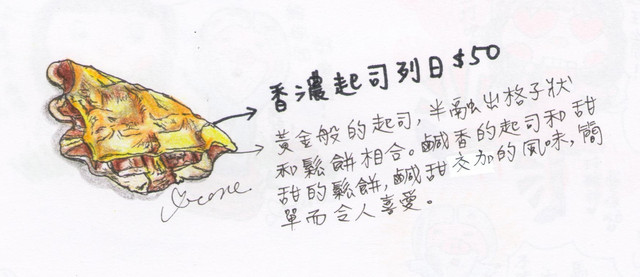 香濃起司列日$50
黃金般的起司,半融出格子狀
和鬆餅相合。鹹香的起司和甜
甜的鬆餅,鹹甜交加的風味,簡
單而令人喜愛。